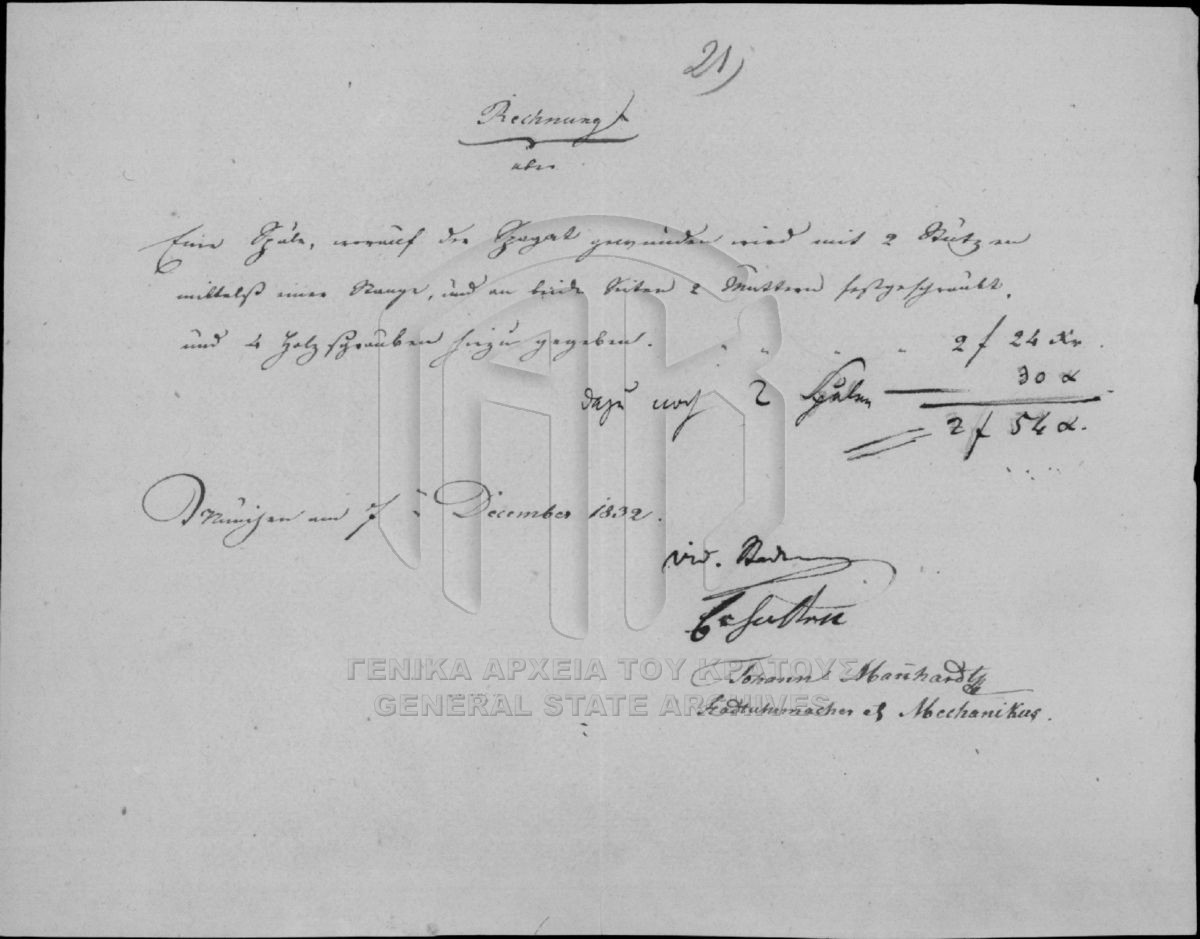 21)
Rechnung
über
Eine Späle, worauf der Spagat gewunden wird mit 2 Stützen
mittelst einer Stange, und an beide Seiten 2 Muttern festgeschraubt,
und 4 Holzschrauben hiezu gegeben. " " " " 2 f 24 Kr.
dazu noch 2 Spülen — 30 x
2 f 54 x.
München am 7 December 1832.
vid.
Johann Mannhardt
Stadtuhrmacher & Mechanikus.
ΓΕΝΙΚΑ ΑΡΧΕΙΑ ΤΟΥ ΚΡΑΤΟΥΣ
GENERAL STATE ARCHIVES